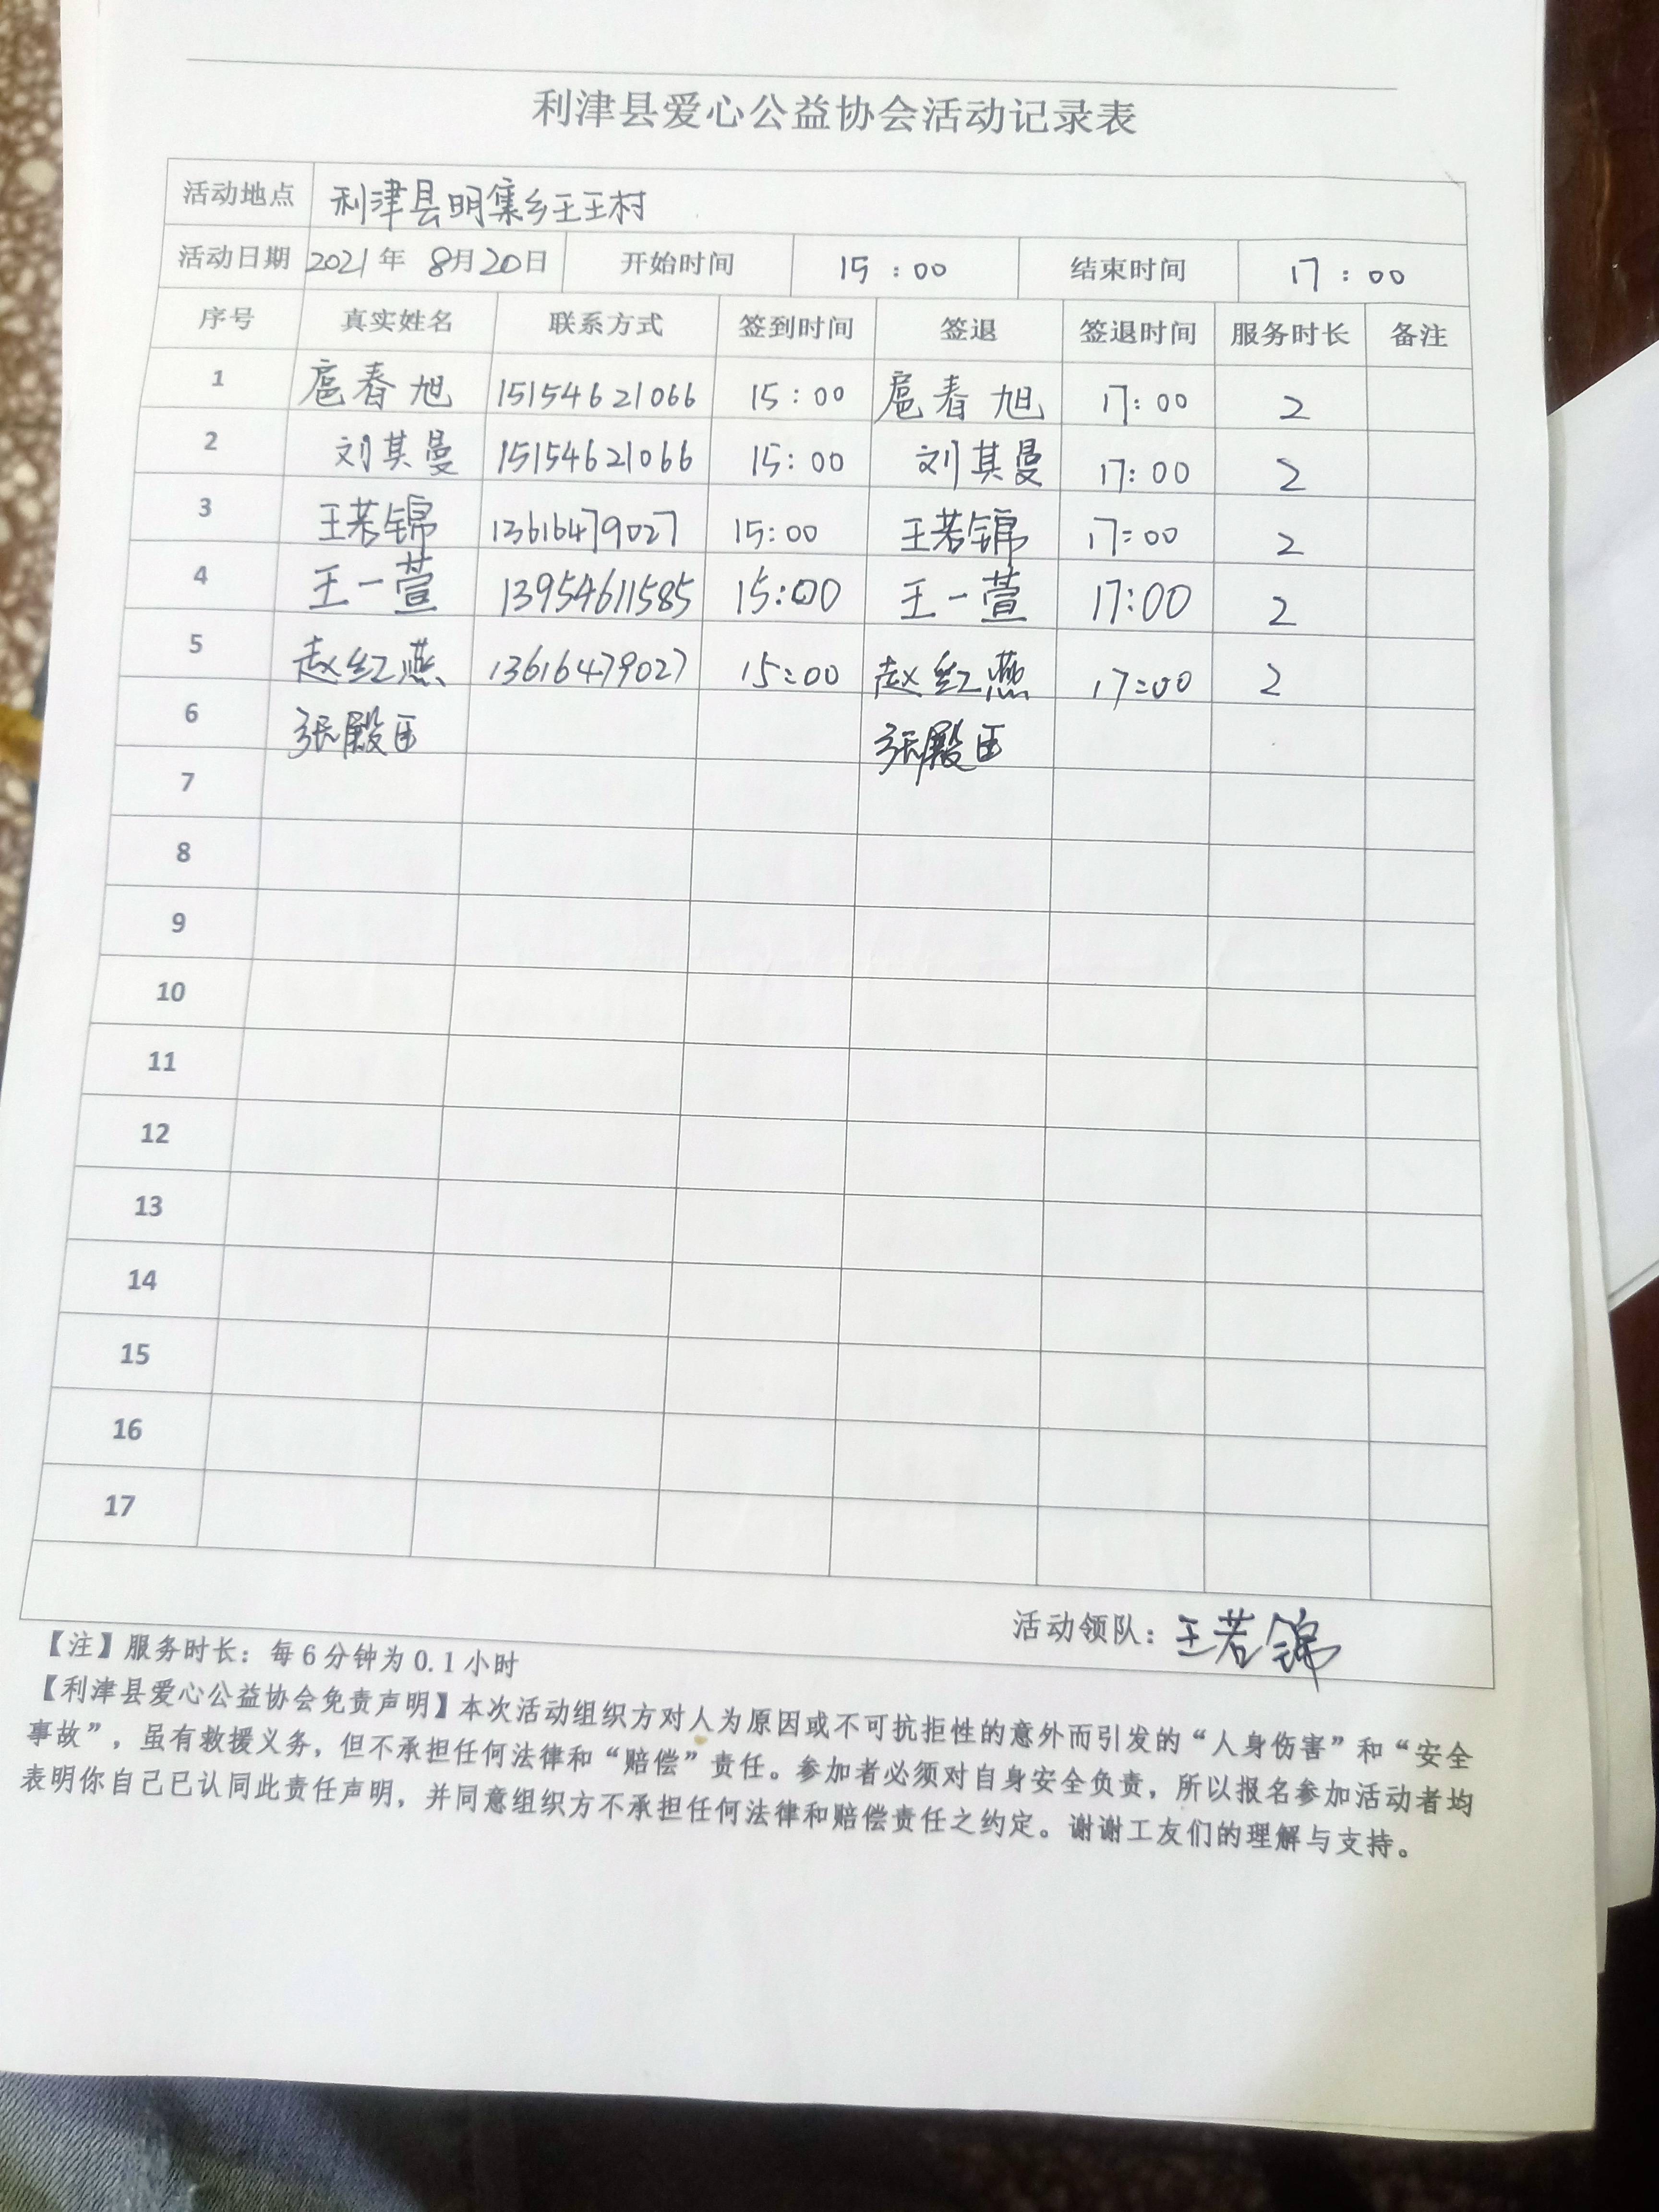 利津县爱心公益协会活动记录表
活动地点 利津县明集乡王王村
活动日期 2021年 8月20日 开始时间 15:00 结束时间 17:00
序号 真实姓名 联系方式 签到时间 签退 签退时间 服务时长 备注
1 扈春旭 15154621066 15:00 扈春旭 17:00 2
2 刘其曼 15154621066 15:00 刘其曼 17:00 2
3 王若锦 13616479027 15:00 王若锦 17:00 2
4 王一萱 13954611585 15:00 王一萱 17:00 2
5 赵红燕 13616479027 15:00 赵红燕 17:00 2
6 张殿 张殿
7
8
9
10
11
12
13
14
15
16
17
活动领队：王若锦
【注】服务时长：每6分钟为0.1小时
【利津县爱心公益协会免责声明】本次活动组织方对人为原因或不可抗拒性的意外而引发的“人身伤害”和“安全
事故”，虽有救援义务，但不承担任何法律和“赔偿”责任。参加者必须对自身安全负责，所以报名参加活动者均
表明你自己已认同此责任声明，并同意组织方不承担任何法律和赔偿责任之约定。谢谢工友们的理解与支持。